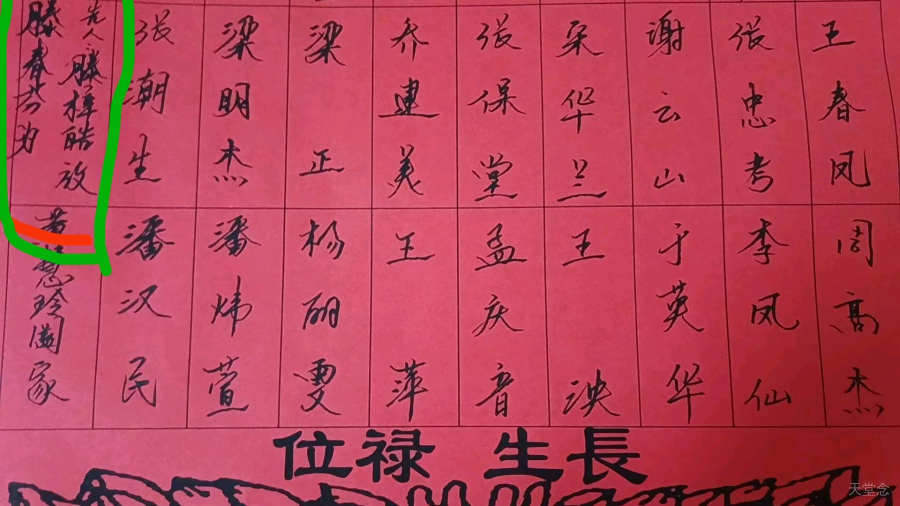 王春凤
张忠考
谢云山
宋华兰
张保堂
乔建美
梁正
梁明杰
张潮生
先人滕梓皓放
滕春芬为
周高杰
李凤仙
于英华
王泱
孟庆音
王萍
杨丽雯
潘炜萱
潘汉民
慧玲阖家
位禄生長
天堂念